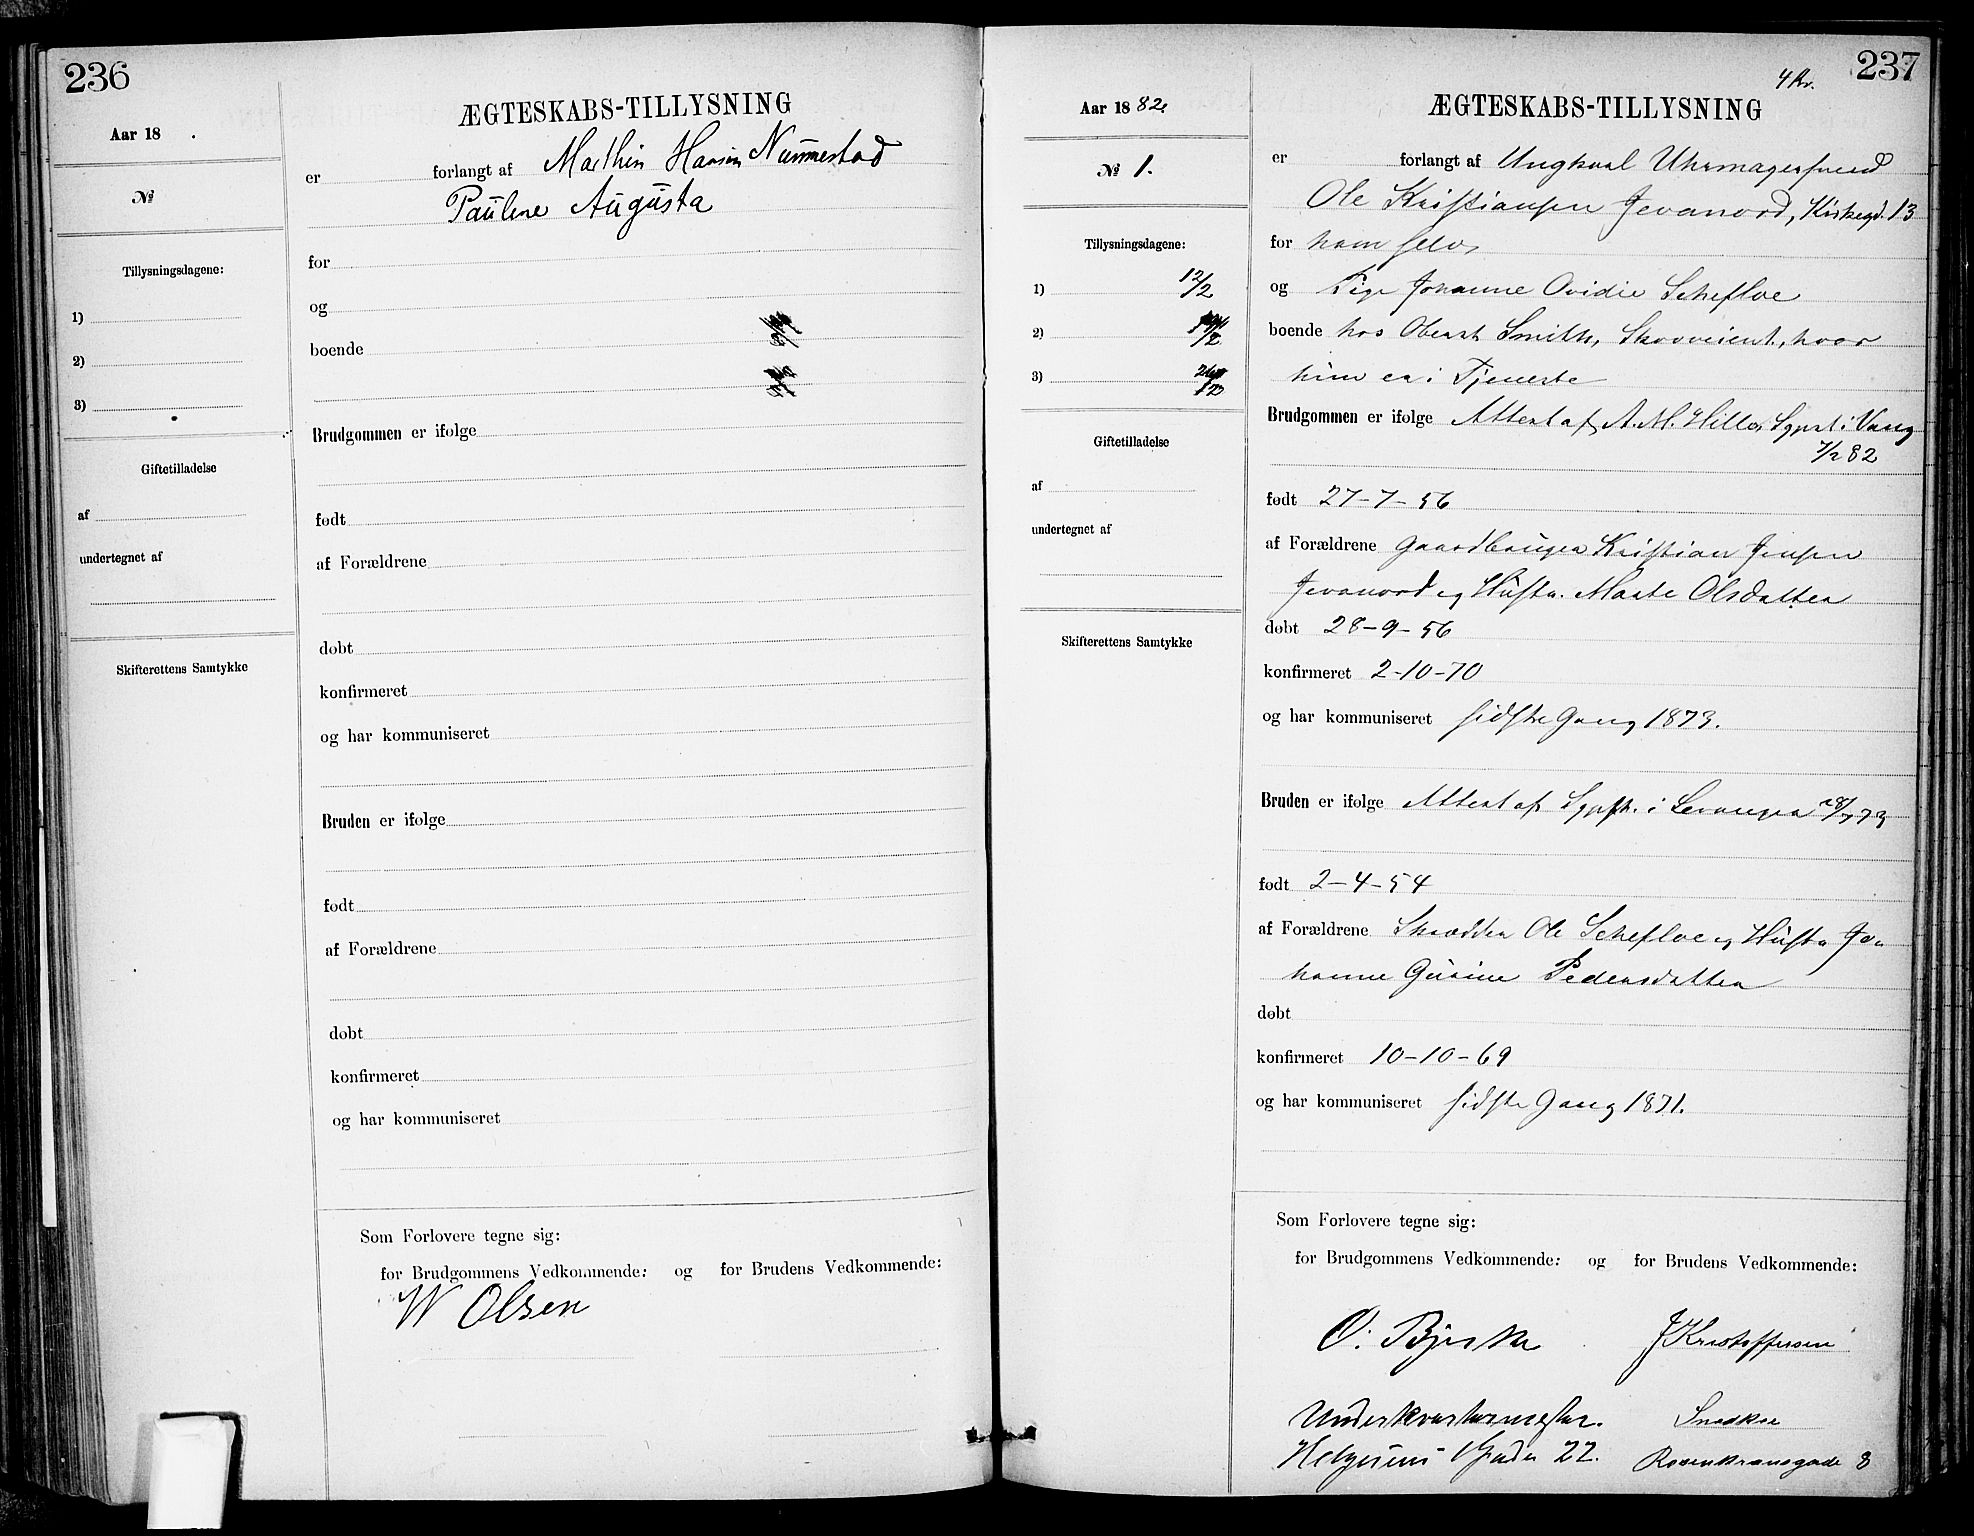 236
Aar 18 .
№
Tillysningsdagene:
1)
2)
3)
Giftetilladelse
af
undertegnet af
Skifterettens Samtykke
ÆGTESKABS-TILLYSNING
er forlangt af Marthin Hansen Nummestad
Pauline Augusta
for
og
boende
Brudgommen er ifølge
født
af Forældrene
døbt
konfirmeret
og har kommuniseret
Bruden er ifølge
født
af Forældrene
døbt
konfirmeret
og har kommuniseret
Som Forlovere tegne sig:
for Brudgommens Vedkommende: og for Brudens Vedkommende:
W Olsen
237
4 Kr.
Aar 1882.
№ 1.
Tillysningsdagene:
1) 12/2
2)
3)
Giftetilladelse
af
undertegnet af
Skifterettens Samtykke
ÆGTESKABS-TILLYSNING
er forlangt af Ungkarl Uhrmagersvend
Ole Kristiansen Jevanord, Kirkegd. 13
for ham selv
og Pige Johanne Ovidie Schefloe
boende hos Oberst Smith, Skovveien, hvor
hun er i Tjeneste
Brudgommen er ifølge Attest af A. M. Hille, Sgprst i Vang
7/2 82
født 27-7-56
af Forældrene Gaardbruger Kristian Jensen
Jevanord og Hustr. Marte Olsdatter
døbt 28-9-56
konfirmeret 2-10-70
og har kommuniseret sidste Gang 1873.
Bruden er ifølge Attest af Sgprst. i Levanger 28/7 73
født 2-4-54
af Forældrene Skrædder Ole Schefloe og Hustr Jo-
hanne Gurine Pedersdatter
døbt
konfirmeret 10-10-69
og har kommuniseret sidste Gang 1871.
Som Forlovere tegne sig:
for Brudgommens Vedkommende: og for Brudens Vedkommende:
O. Bjerke J Kristoffersen
Underkvartermester. Snedker
Helgesens Gade 22. Rosenkransgade 8